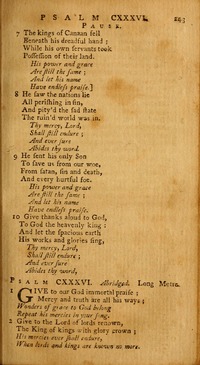 PSALM CXXXVI. 293
PAUSE.
7 The kings of Canaan fell
Beneath his dreadful hand;
While his own servants took
Possession of their land.
His power and grace
Are still the same;
And let his name
Have endless praise.]
8 He saw the nations lie
All perishing in sin,
And pity'd the sad state
The ruin'd world was in.
Thy mercy, Lord,
Shall still endure;
And ever sure
Abides thy word.
9 He sent his only Son
To save us from our woe,
From satan, sin and death,
And every hurtful foe.
His power and grace
Are still the same;
And let his name
Have endless praise.
10 Give thanks aloud to God,
To God the heavenly king:
And let the spacious earth
His works and glories sing,
Thy mercy, Lord,
Shall still endure;
And ever sure
Abides thy word,
PSALM CXXXVI. Abridged. Long Metre.
1 GIVE to our God immortal praise;
Mercy and truth are all his ways;
Wonders of grace to God belong
Repeat his mercies in your song.
2 Give to the Lord of lords renown,
The King of kings with glory crown;
His mercies ever shall endure,
When lords and kings are known no more.